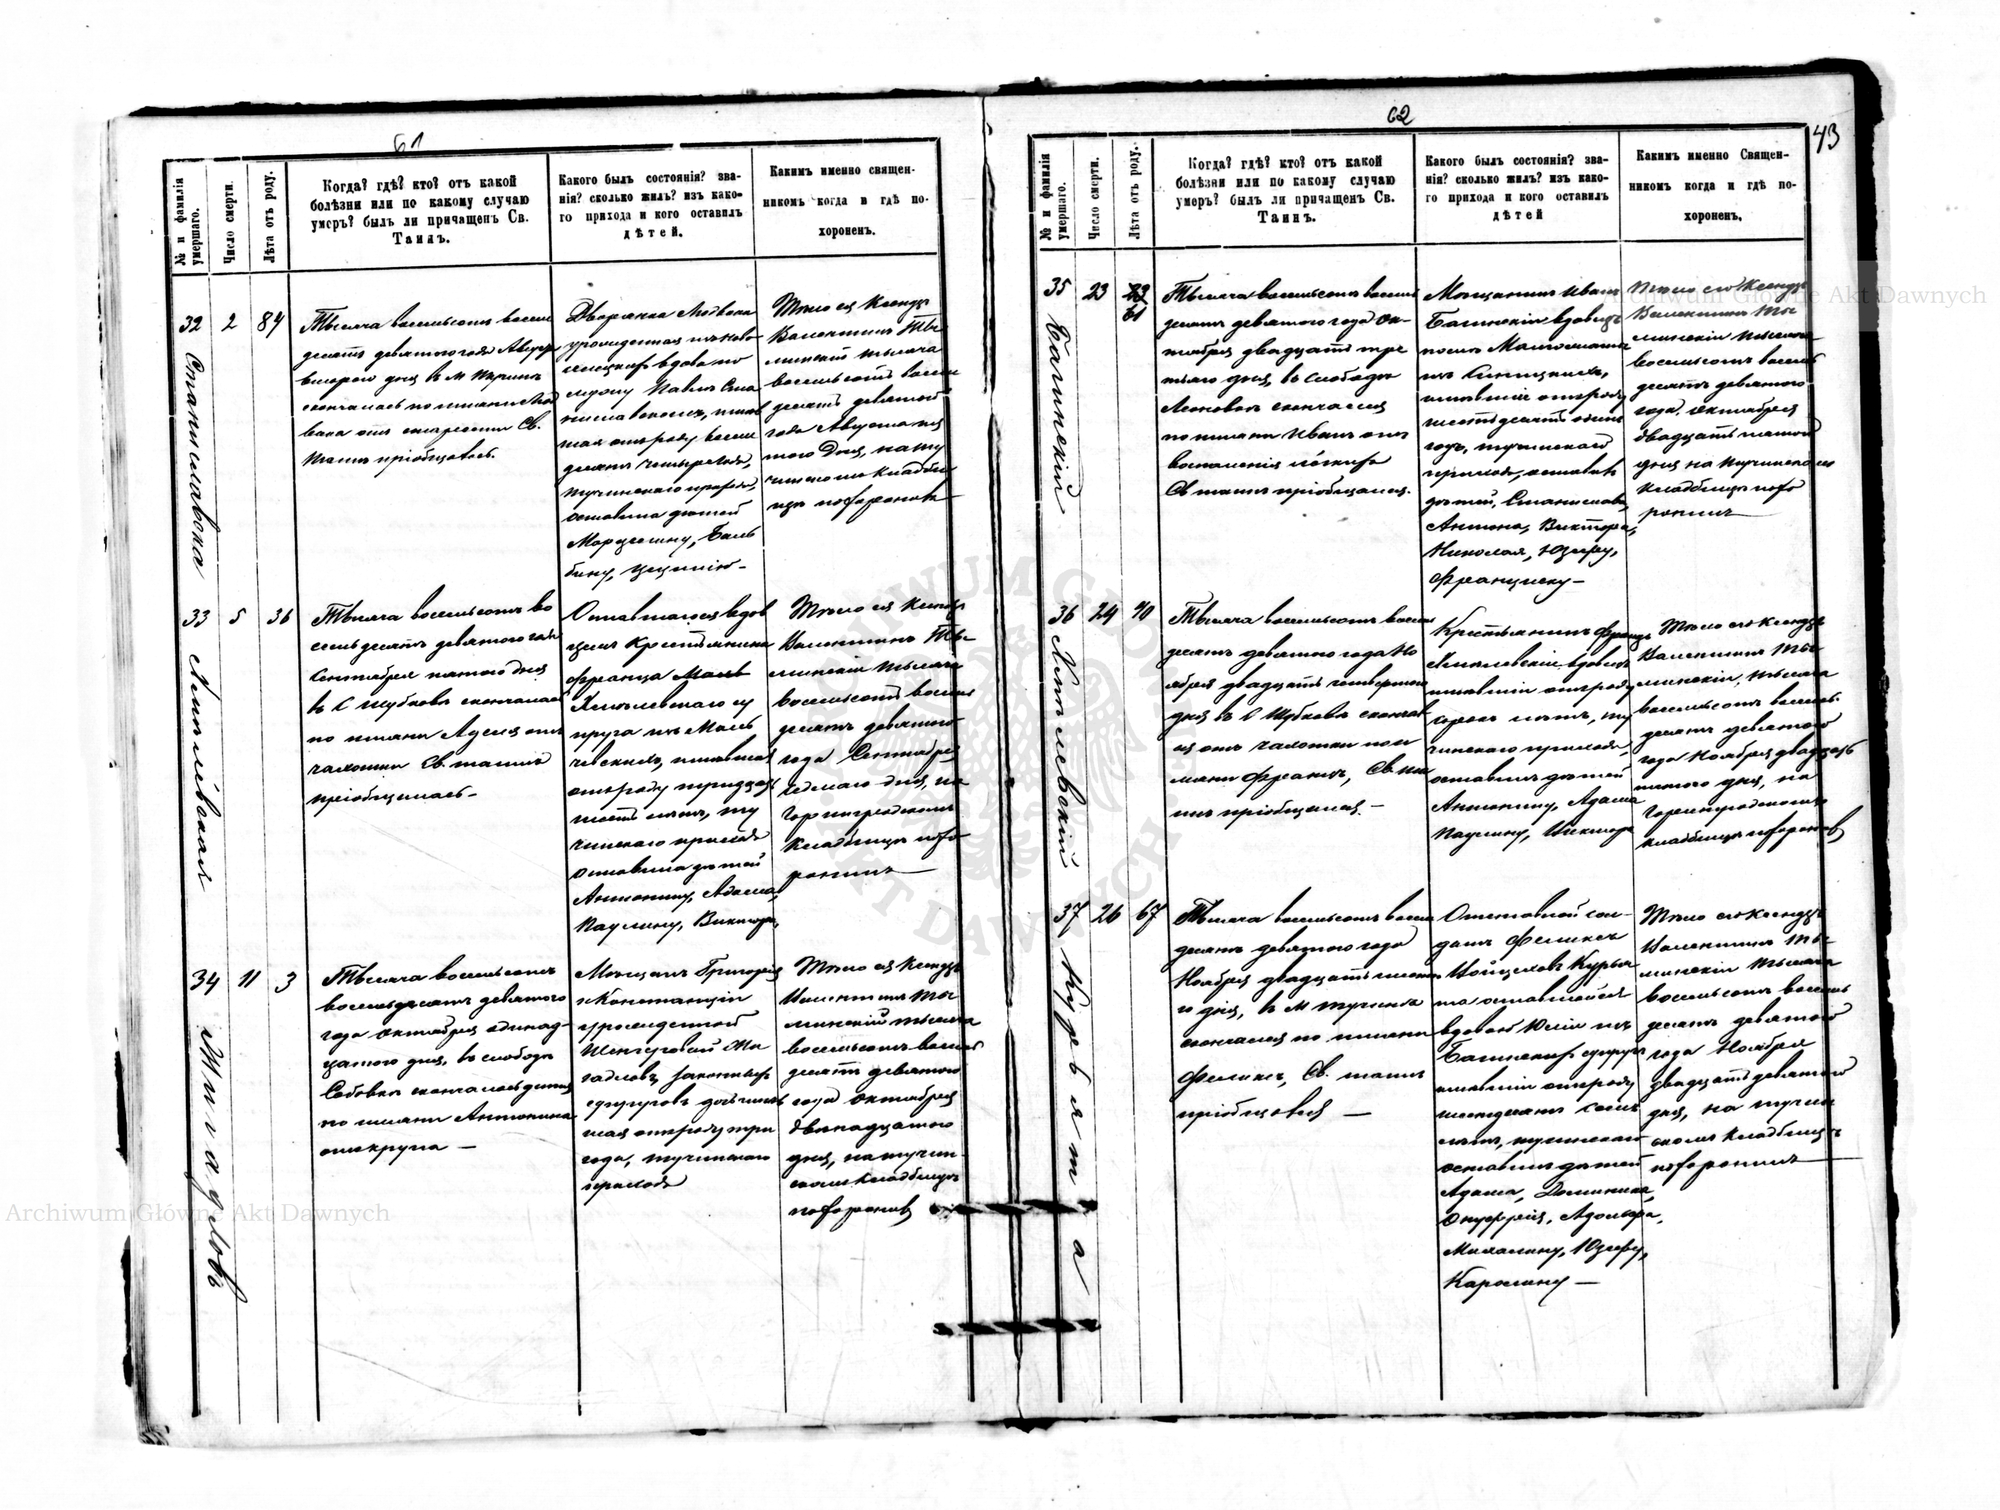 61
№ и фамилія умершаго.
Число смерти.
Лѣта отъ роду.
Когда? гдѣ? кто? отъ какой
болѣзни или по какому случаю
умеръ? былъ ли причащенъ Св.
Таинъ.
Какого былъ состоянія? зва-
нія? сколько жилъ? изъ како-
го прихода и кого оставилъ
дѣтей.
Какимъ именно священ-
никомъ когда и гдѣ по-
хороненъ.
32 2 84
Станиславска
Тысяча восемьсотъ восемь
десятъ девятого года Августа
второго дня въ м Тучинѣ
скончалась по имени Люд
вика отъ старости Св.
таинъ пріобщалась.
Дворянка Людвика
урожденная
вдова по
мужу Павлѣ Ста
ниславскомъ, имѣв
шая отъ роду восемь
десятъ четыре года,
Тучинского прихода,
оставила дѣтей
Марцелину, Баль
бину, Цецилію–
Тѣло ея Ксендзъ
Валентинъ Ты
минскій тысяча
восемьсотъ восемь
десятъ девятого
года Августа пя
того дня, на Ту
чинскомъ кладби
щѣ похоронилъ
33 5 36
Хмѣлѣвская
Тысяча восемьсотъ во
семьдесятъ девятого года
Сентября пятого дня
въ с Шубковѣ скончалась
по имени Аделя отъ
чахотки Св. таинъ
пріобщилась–
Оставшагося вдов
цемъ Крестьянина
Франца
Хмѣлевскаго су
пруга изъ
имѣвшая
отъ роду тридцать
шесть лѣтъ, Ту
чинскаго прихода
оставила дѣтей
Антонину, Адама,
Паулину, Виктора,
Тѣло ея Ксендзъ
Валентинъ Ты-
минскій тысяча
восемьсотъ восемь
десятъ девятого
года Сентября
седмаго дня, на
Горынградскомъ
кладбищѣ похо
ронилъ
34 11 3
Жигадловъ
Тысяча восемьсотъ
восемьдесятъ девятого
года октября одинад-
цатого дня, въ слободѣ
скончалась дитя
по имени Антонина
отъ крупа —
Мѣщанъ Григорія
и Констанціи
урожденной
законныхъ
супруговъ дочь имѣв
шая отъ роду три
года, тучинскаго
прихода
Тѣло ея Ксендзъ
Валентинъ Ты
минскій тысяча
восемьсотъ восемь
десятъ девятого
года октября
двѣнадцатого
дня, на тучин-
скомъ кладбищѣ
похоронилъ
62
43
№ и фамилія умершаго.
Число смерти.
Лѣта отъ роду.
Когда? гдѣ? кто? отъ какой
болѣзни или по какому случаю
умеръ? былъ ли причащенъ Св.
Таинъ.
Какого былъ состоянія? зва-
нія? сколько жилъ? изъ како-
го прихода и кого оставилъ
дѣтей
Какимъ именно Священ-
никомъ когда и гдѣ по-
хороненъ.
35 23 23
61
Багинскій
Тысяча восемьсотъ восемь
десятъ девятого года Ок-
тября двадцать тре
тьяго дня, въ слободѣ
Леоновкѣ скончался
по имени Иванъ отъ
воспаленія лёгкихъ
Св таинъ пріобщался.
Мѣщанинъ Иванъ
Багинскій вдовецъ
послѣ
изъ
имѣвшій отъ роду
шестьдесятъ одинъ
годъ, тучинскаго
прихода, оставилъ
дѣтей, Станислава,
Антона, Виктора,
Николая, Юзефу,
Франциску —
Тѣло его Ксендзъ
Валентинъ Ты
минскій тысяча
восемьсотъ восемь
десятъ девятого
года октября
двадцать пятого
дня на Тучинскомъ
кладбищѣ похо
ронилъ
36 24 40
Хмѣлевскій
Тысяча восемьсотъ восемь
десятъ девятого года Но
ября двадцать четвертого
дня въ с Шубковѣ скончал
ся отъ чахотки по и
мени Францъ, Св. та
инъ пріобщался. —
Крестьянинъ Францъ
Хмѣлевскій вдовецъ
имѣвшій отъ роду
сорокъ лѣтъ, ту
чинскаго прихода,
оставилъ дѣтей
Антонину, Адама
Паулину, Виктора
Тѣло его Ксендзъ
Валентинъ Ты-
минскій, тысяча
восемьсотъ восемь-
десятъ девятого
года Ноября двадцать
пятого дня, на
Горынградскомъ
кладбищѣ похоронилъ
37 26 67
Курьята
Тысяча восемьсотъ восемь
десятъ девятого года
Ноября двадцать шесто
го дня, въ м Тучинѣ
скончался по имени
Феликсъ, Св. таинъ
пріобщался —
Отставной сол-
датъ Феликсъ
Войцеховъ Курья
та оставшейся
вдовою Юліи изъ
Багинскихъ супругъ
имѣвшій отъ роду
шестьдесятъ семь
лѣтъ, тучинскаго
оставилъ дѣтей
Адама, Доминика,
Онуфрія, Адольфа,
Михалину, Юзефу,
Каролину —
Тѣло его Ксендзъ
Валентинъ Ты-
минскій тысяча
восемьсотъ восемь
десятъ девятого
года Ноября
двадцать девятого
дня, на тучин
скомъ кладбищѣ
похоронилъ
Archiwum Główne Akt Dawnych
Archiwum Główne Akt Dawnych